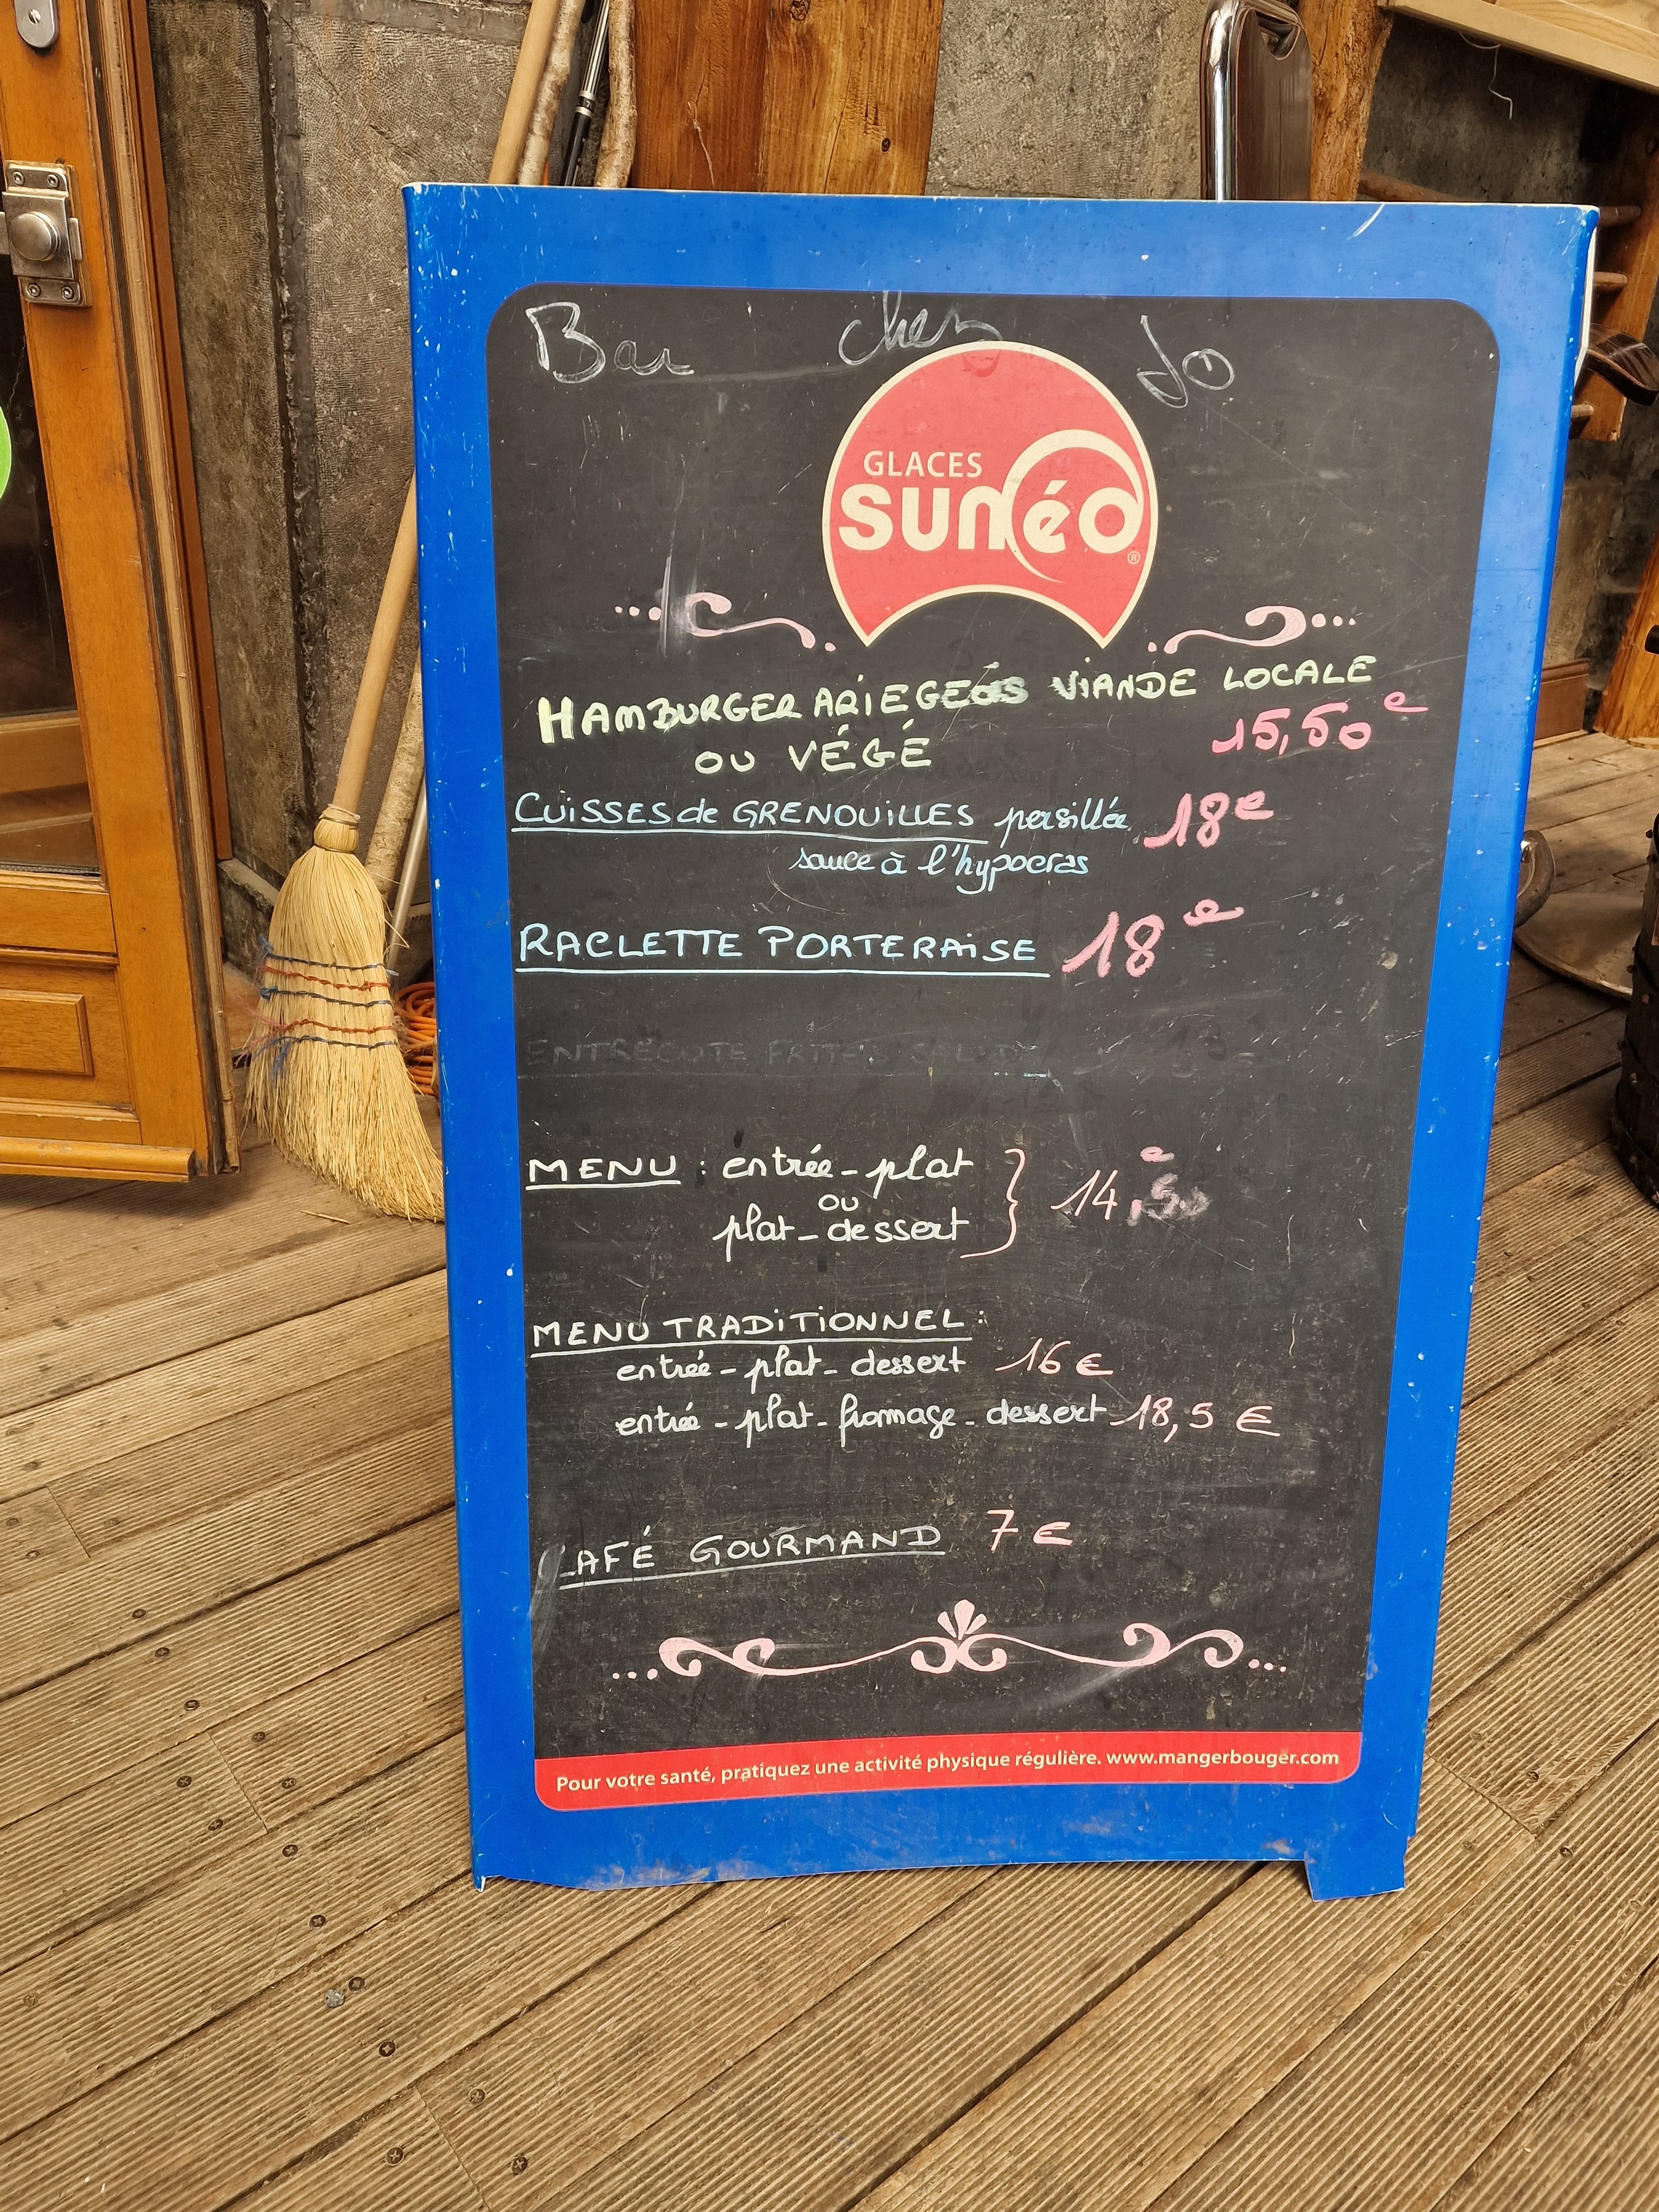 Bar chez Jo
GLACES
sunéo®
HAMBURGER ARIEGEOIS VIANDE LOCALE
OU VÉGÉ 15,50e
CUISSES de GRENOUILLES persillée 18e
sauce à l'hypocras
RACLETTE PORTERAISE 18e
ENTRECOTE FRITES SALADE
MENU : entrée - plat
ou
plat - dessert } 14,50e
MENU TRADITIONNEL :
entrée - plat - dessert 16 €
entrée - plat - fromage - dessert 18,5 €
CAFÉ GOURMAND 7 €
Pour votre santé, pratiquez une activité physique régulière. www.mangerbouger.com